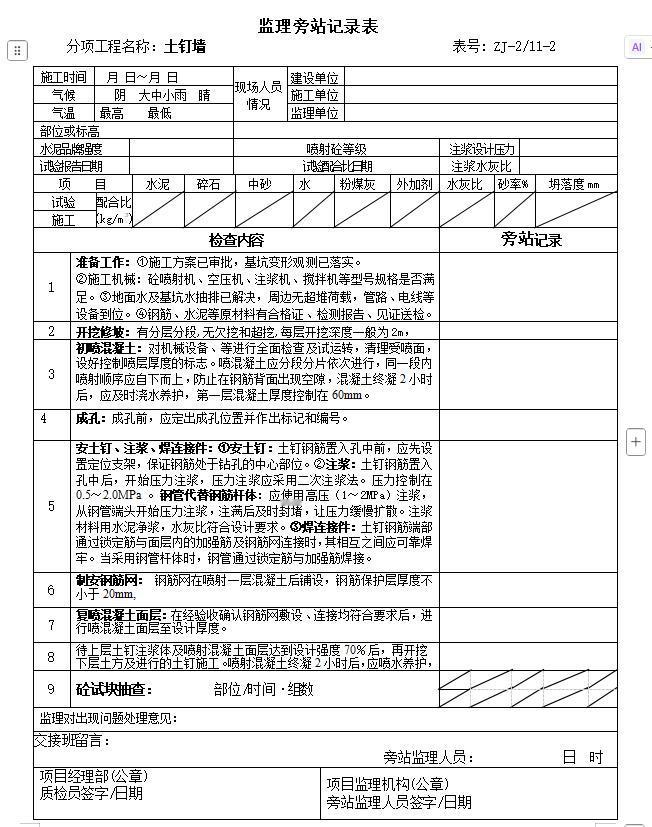 监理旁站记录表
分项工程名称：土钉墙 表号：ZJ-2/11-2
AI
施工时间 月 日～月 日 现场人员情况 建设单位
气候 阴 大中小雨 晴 施工单位
气温 最高 最低 监理单位
部位或标高
水泥品牌强度 喷射砼等级 注浆设计压力
试验报告日期 试验配合比日期 注浆水灰比
项 目 水泥 碎石 中砂 水 粉煤灰 外加剂 水灰比 砂率% 坍落度mm
试验 配合比
施工 (kg/m³)
检查内容 旁站记录
1 准备工作：①施工方案已审批，基坑变形观测已落实。
②施工机械：砼喷射机、空压机、注浆机、搅拌机等型号规格是否满
足。③地面水及基坑水抽排已解决，周边无超堆荷载，管路、电线等
设备到位。④钢筋、水泥等原材料有合格证、检测报告、见证送检。
2 开挖修坡：有分层分段,无欠挖和超挖,每层开挖深度一般为2m，
3 初喷混凝土：对机械设备、等进行全面检查及试运转，清理受喷面，
设好控制喷层厚度的标志。喷混凝土应分段分片依次进行，同一段内
喷射顺序应自下而上，防止在钢筋背面出现空隙，混凝土终凝2小时
后，应及时浇水养护，第一层混凝土厚度控制在60mm。
4 成孔：成孔前，应定出成孔位置并作出标记和编号。
5 安土钉、注浆、焊连接件：①安土钉：土钉钢筋置入孔中前，应先设
置定位支架，保证钢筋处于钻孔的中心部位。②注浆：土钉钢筋置入
孔中后，开始压力注浆，压力注浆应采用二次注浆法。压力控制在
0.5～2.0MPa 。钢管代替钢筋杆体：应使用高压（1～2MPa）注浆，
从钢管端头开始压力注浆，注满后及时封堵，让压力缓慢扩散。注浆
材料用水泥净浆，水灰比符合设计要求。③焊连接件：土钉钢筋端部
通过锁定筋与面层内的加强筋及钢筋网连接时，其相互之间应可靠焊
牢。当采用钢管杆体时，钢管通过锁定筋与加强筋焊接。
6 制安钢筋网： 钢筋网在喷射一层混凝土后铺设，钢筋保护层厚度不
小于20mm,
7 复喷混凝土面层：在经验收确认钢筋网敷设、连接均符合要求后，进
行喷混凝土面层至设计厚度。
8 待上层土钉注浆体及喷射混凝土面层达到设计强度70%后，再开挖
下层土方及进行的土钉施工。喷射混凝土终凝2小时后，应喷水养护，
9 砼试块抽查： 部位/时间·组数
监理对出现问题处理意见：
交接班留言：
旁站监理人员： 日 时
项目经理部(公章) 项目监理机构(公章)
质检员签字/日期 旁站监理人员签字/日期